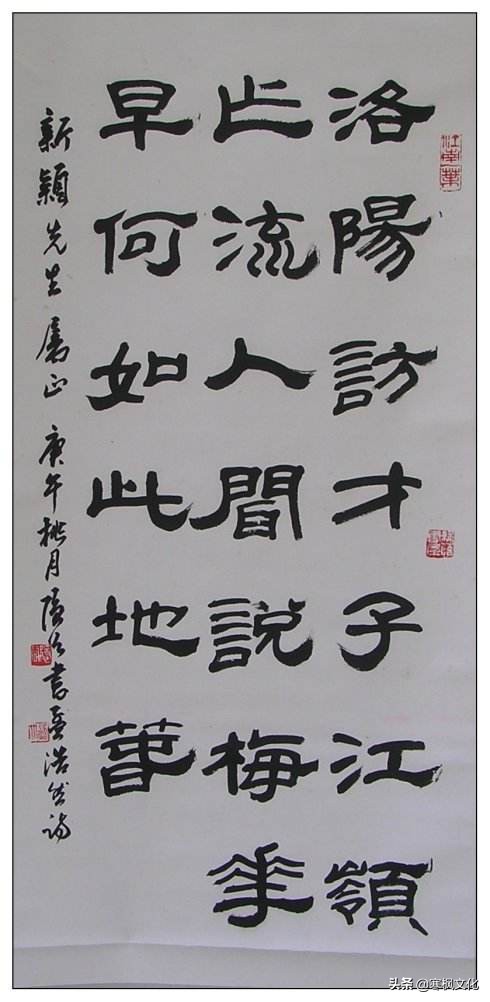 江南一葉
洛陽訪才子江嶺
乍流人聞說梅華
早何如此地萅
新穎先生属正 庚午桃月 書孟浩然詩
头条 @寒枫文化